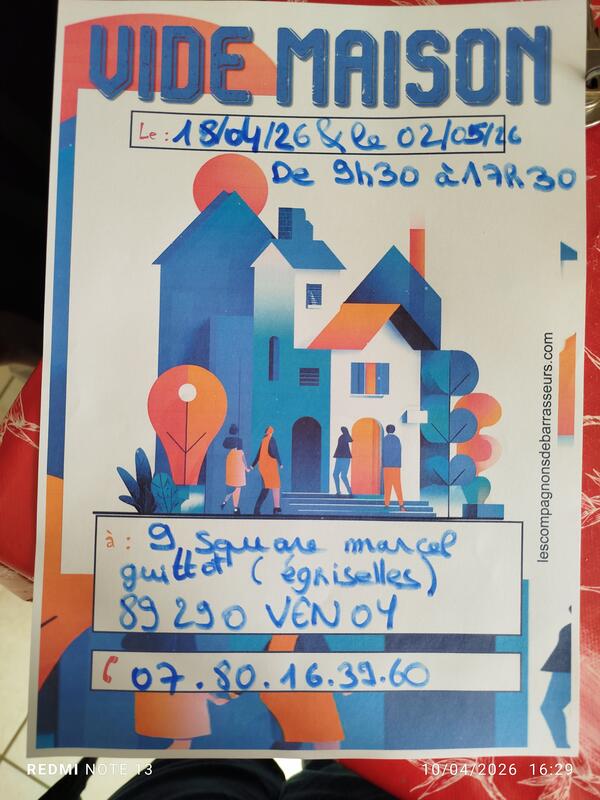 VIDE MAISON
Le : 18/04/26 & le 02/05/26
De 9h30 à 17h30
lescompagnonsdebarrasseurs.com
à : 9 square marcel
guittot (égriselles)
89290 VENOY
07.80.16.39.60
REDMI NOTE 13
10/04/2026 16:29